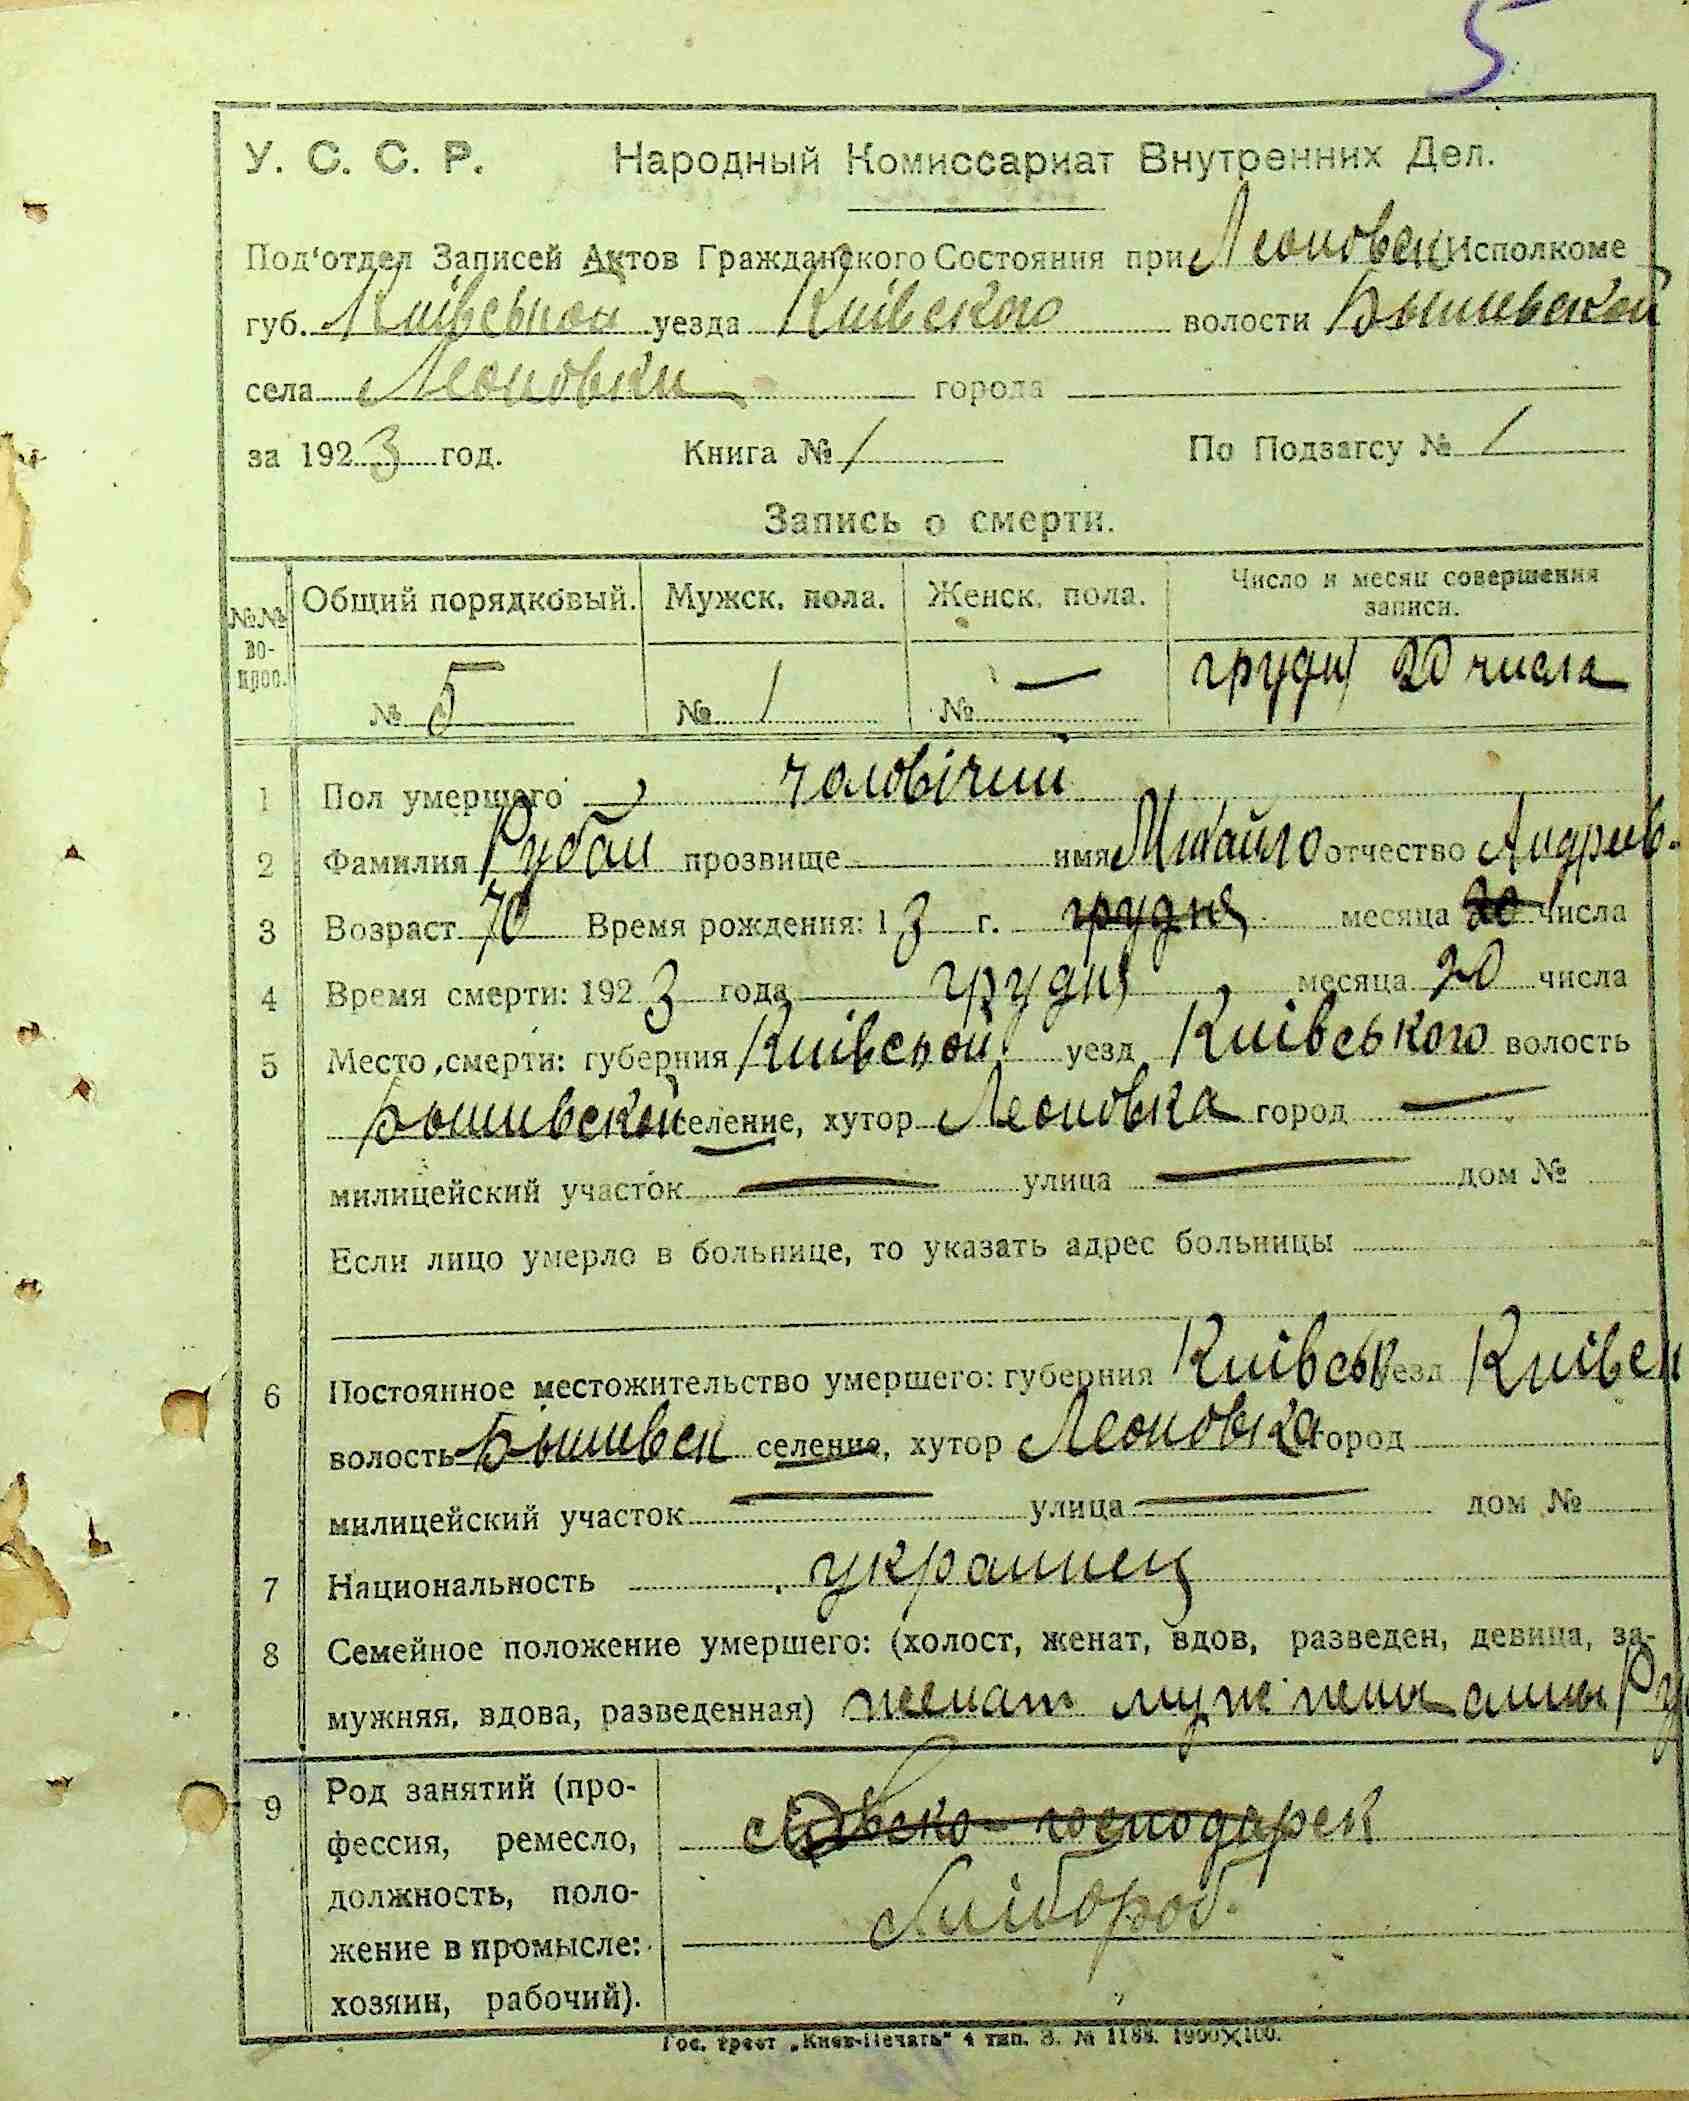 5
У. С. С. Р. Народный Комиссариат Внутренних Дел.
Под'отдел Записей Актов Гражданского Состояния при Леоновск Исполкоме
губ. Київської уезда Київского волости Бышевской
села Леоновки города
за 1923 год. Книга № 1 По Подзагсу № 1
Запись о смерти.
№№ вопрос. Общий порядковый. Мужск. пола. Женск. пола. Число и месяц совершения записи.
№ 5 № 1 № — грудня 20 числа
1 Пол умершего чоловічий
2 Фамилия Рубан прозвище имя Михайло отчество Андріев.
3 Возраст 70 Время рождения: 1 3 г. грудня месяца 20 числа
4 Время смерти: 1923 года грудня месяца 20 числа
5 Место смерти: губерния Київськой уезд Київського волость
Бышивской селение, хутор Леоновка город —
милицейский участок — улица — дом №
Если лицо умерло в больнице, то указать адрес больницы
6 Постоянное местожительство умершего: губерния Київськ уезд Київск
волость Бышивск селение, хутор Леоновка город
милицейский участок — улица — дом №
7 Национальность украинец
8 Семейное положение умершего: (холост, женат, вдов, разведен, девица, за-
мужняя, вдова, разведенная) женат муж жены Ру
9 Род занятий (про-
фессия, ремесло, сільско-господарск
должность, поло- Хлібороб.
жение в промысле:
хозяин, рабочий).
Гос. трест „Киев-Печать" 4 тип. З. № 1188. 1900×100.